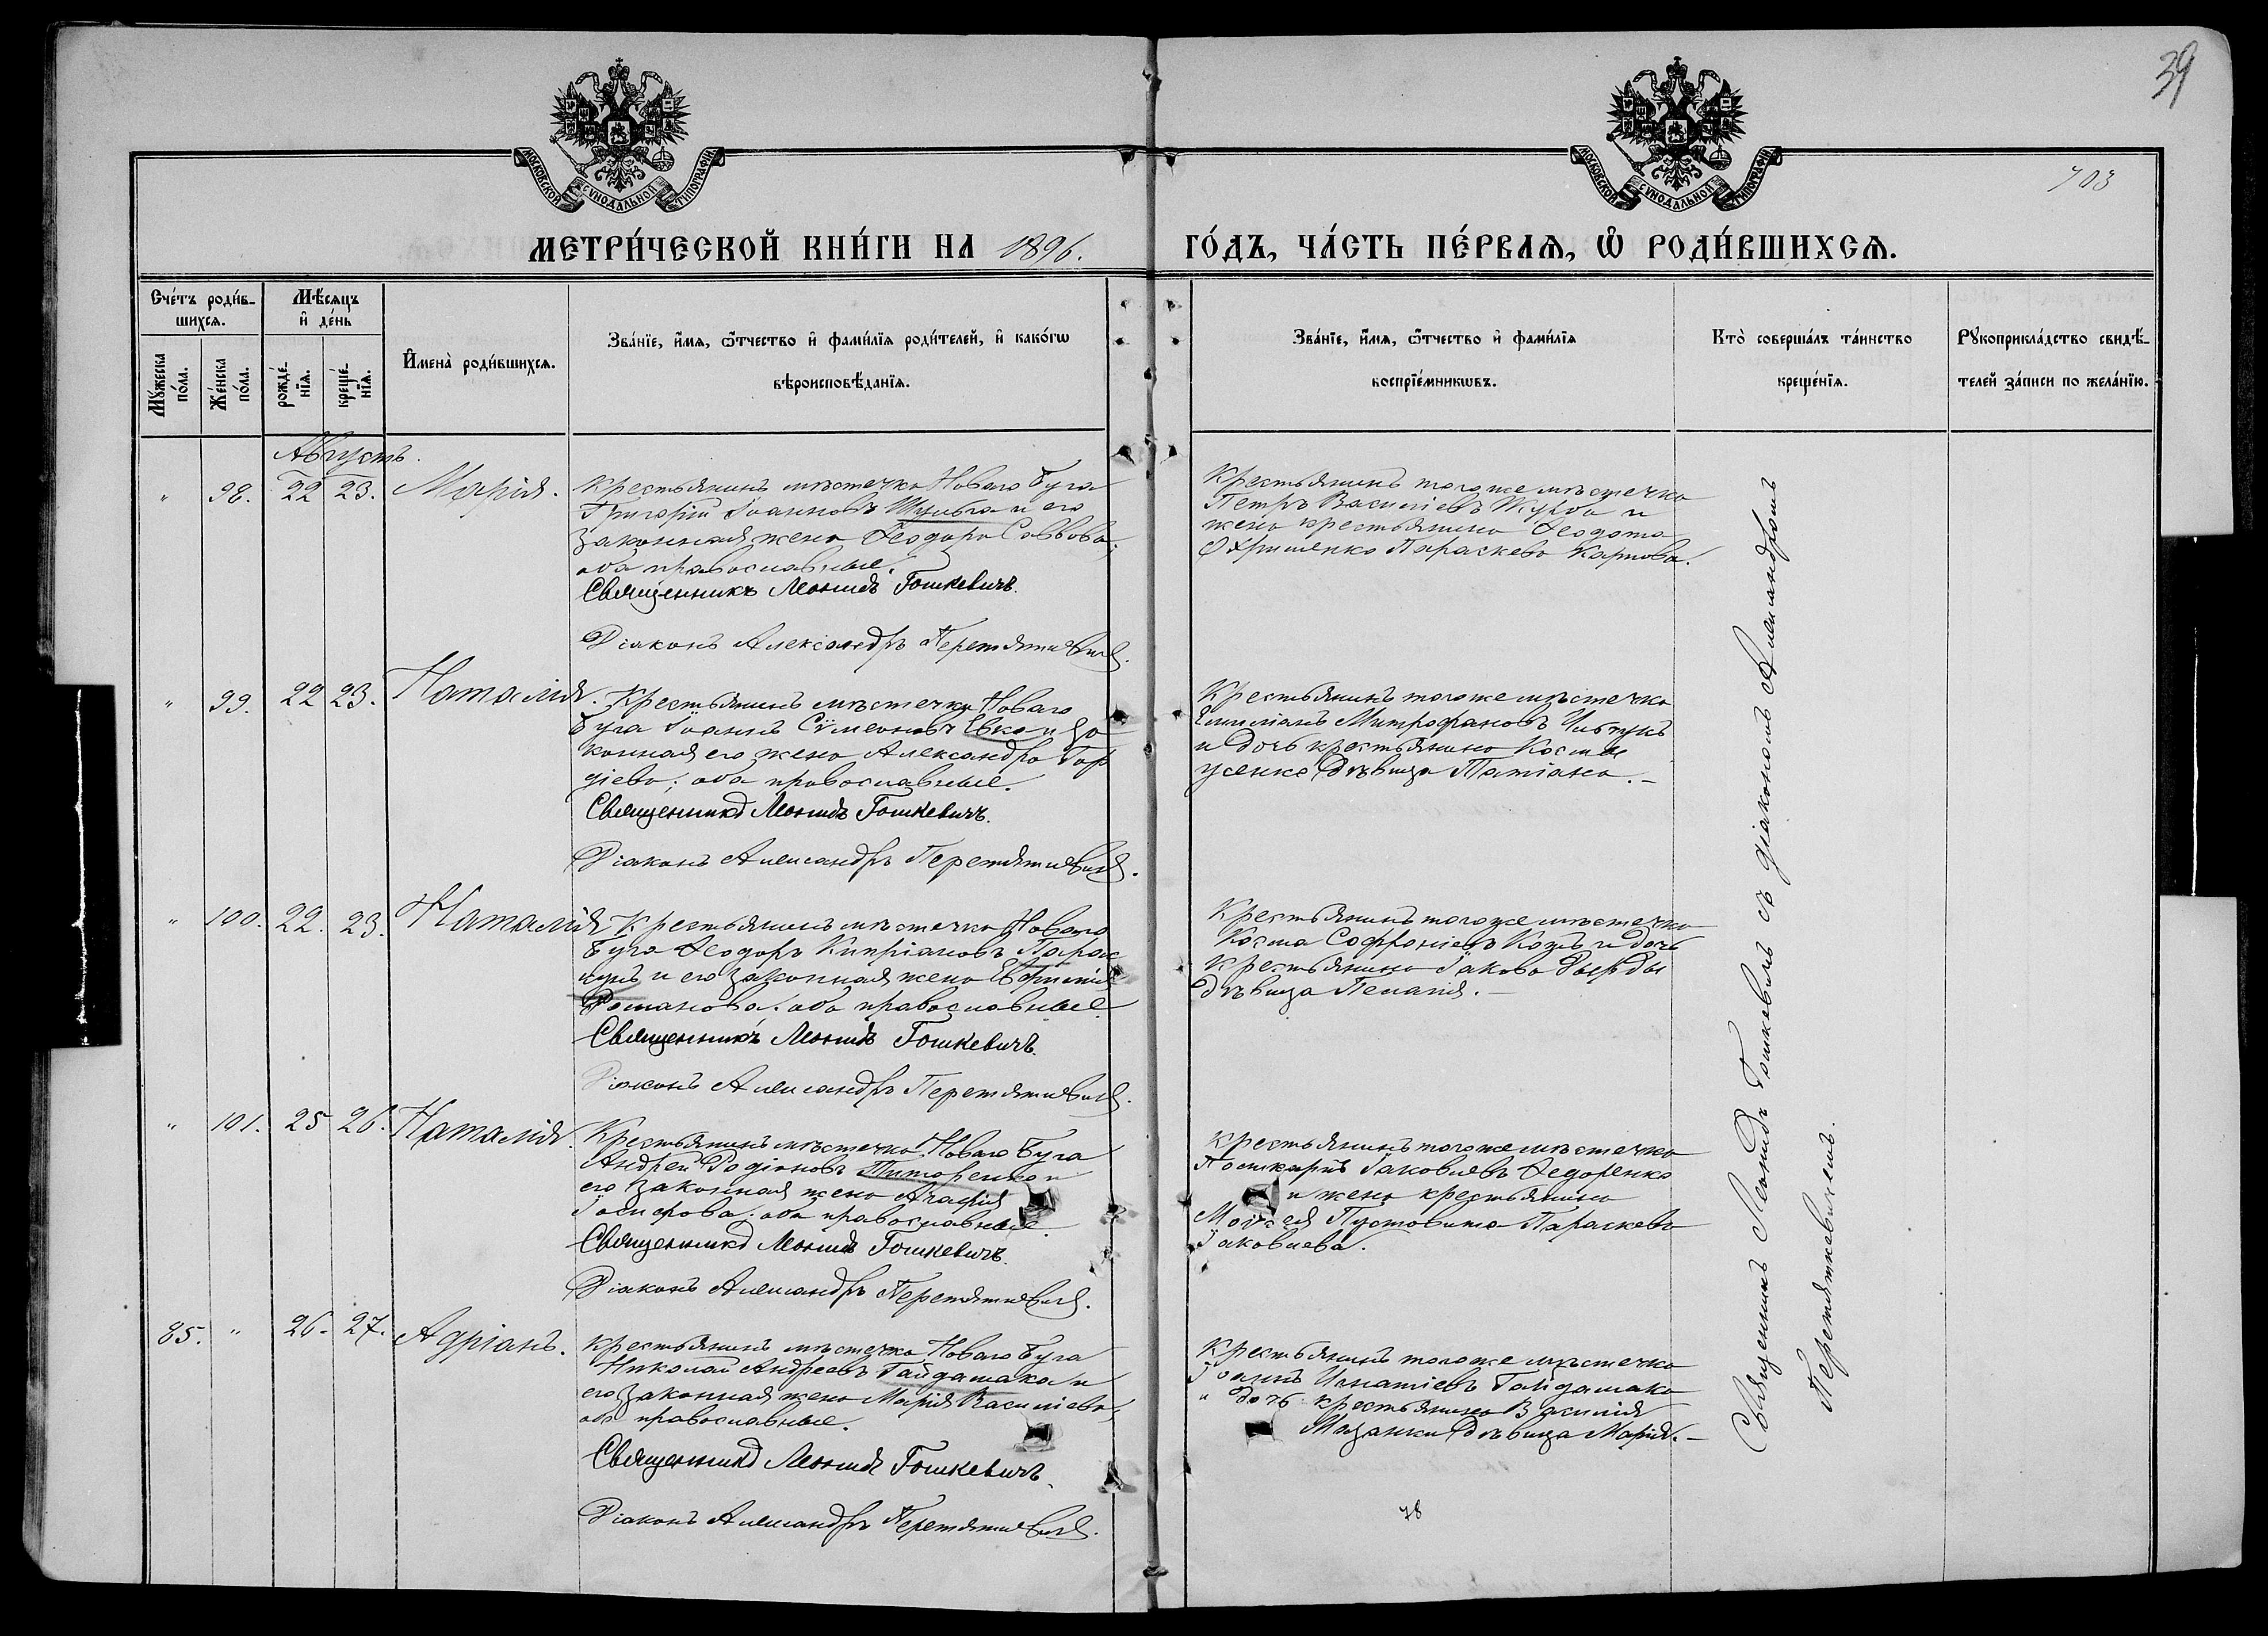 39
703
МОСКОВСКОЙ СУНОДАЛЬНОЙ ТИПОГРАФІИ
МОСКОВСКОЙ СУНОДАЛЬНОЙ ТИПОГРАФІИ
МЕТРИ́ЧЕСКОЙ КНИ́ГИ НА 1896. ГО́ДЪ, ЧА́СТЬ ПЕ́РВАѦ, Ѡ҆ РОДИ́ВШИХСѦ.
Сче́тъ роди́в-
шихсѧ.
Мѣ́сѧцъ
и҆ де́нь
Мꙋ́жеска
по́ла.
Же́нска
по́ла.
рожде́-
нїѧ.
креще́-
нїѧ.
И҆мена̀ роди́вшихсѧ.
Зва́нїе, и҆́мѧ, ѻ҆́тчество и҆ фами́лїѧ роди́телей, и҆ како́гѡ
вѣроисповѣ́данїѧ.
Зва́нїе, и҆́мѧ, ѻ҆́тчество и҆ фами́лїѧ
воспрїе́мникѡвъ.
Кто̀ соверша́лъ та́инство
креще́нїѧ.
Рꙋкоприкла́дство свидѣ́-
телей за́писи по жела́нїю.
Августъ.
" 98. 22 23. Марія.
Крестьянинъ мѣстечка Новаго Буга
Григорій Іоанновъ Шульга и его
законная жена Ѳеодора Саввова;
оба православные.
Священникъ Леонидъ Гошкевичъ.
Діаконъ Александръ Перетяткевичъ.
Крестьянинъ того же мѣстечка
Петръ Василіевъ Журба и
жена крестьянина Ѳеодота
Охрименко Параскева Карпова.
" 99. 22 23. Наталія.
Крестьянинъ мѣстечка Новаго
Буга Іоаннъ Сѵмеоновъ Евко и за
конная его жена Александра Гор
діева; оба православные.
Священникъ Леонидъ Гошкевичъ.
Діаконъ Александръ Перетяткевичъ.
Крестьянинъ того же мѣстечка
Емиліанъ Митрофановъ Чибукъ
и дочь крестьянина Космы
Усенко дѣвица Татіана. –
" 100. 22. 23. Наталія
Крестьянинъ мѣстечка Новаго
Буга Ѳеодоръ Кипріановъ
и его законная жена Евфимія
Романова: оба православные.
Священникъ Леонидъ Гошкевичъ.
Діаконъ Александръ Перетяткевичъ.
Крестьянинъ того же мѣстечка
Косма Софроніевъ Козъ и дочь
крестьянина Іакова Дырды
дѣвица Пелагія. –
" 101. 25 26. Наталія.
Крестьянинъ мѣстечка Новаго Буга
Андрей Родіоновъ Титоренко и
его законная жена Агафія
Іосифова: оба православные.
Священникъ Леонидъ Гошкевичъ.
Діаконъ Александръ Перетяткевичъ.
Крестьянинъ того же мѣстечка
Поликарпъ Іаковлевъ Ѳедоренко
и жена крестьянина
Моисея Пустовита Параскева
Іаковлева.
85. " 26. 27. Адріанъ.
Крестьянинъ мѣстечка Новаго Буга
Николай Андреевъ Гайдамака и
его законная жена Марія Василіева,
оба православные.
Священникъ Леонидъ Гошкевичъ.
Діаконъ Александръ Перетяткевичъ.
Крестьянинъ того же мѣстечка
Іоаннъ Игнатіевъ Гайдамака
и дочь крестьянина Василія
Мазанки дѣвица Марія. –
Священникъ Леонидъ Гошкевичъ съ діакономъ Александромъ
Перетяткевичемъ.